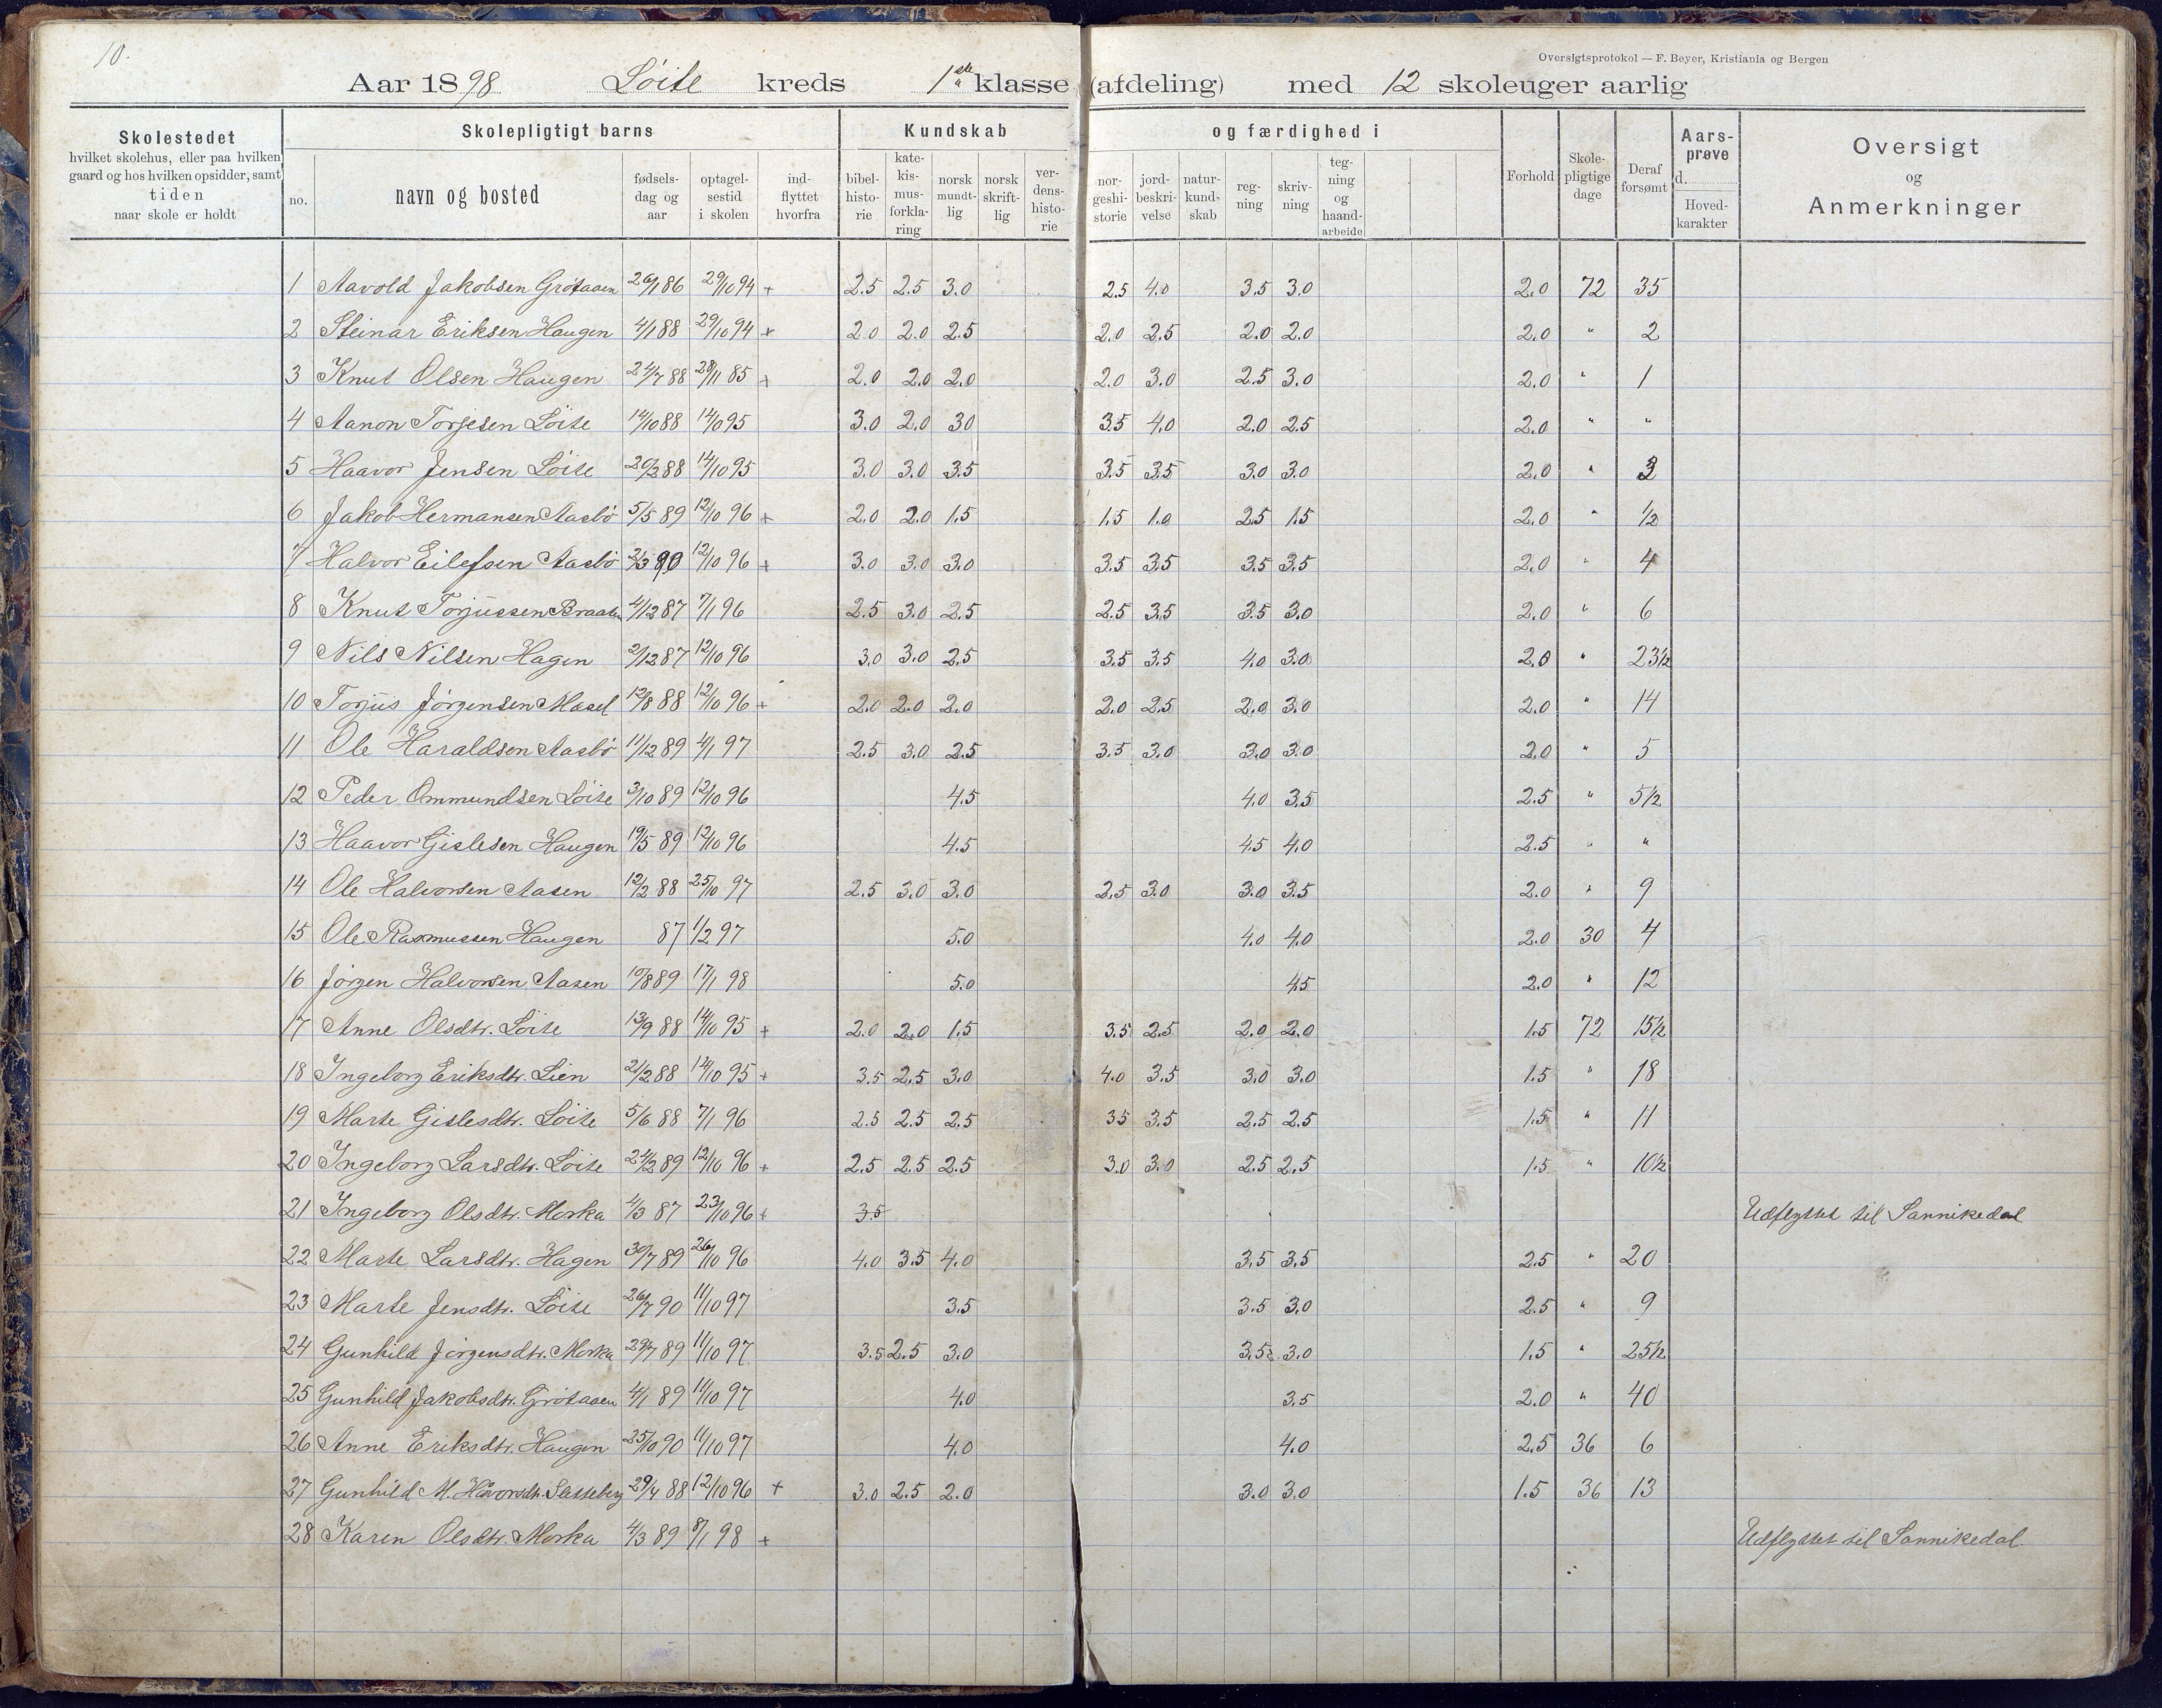 10.
Oversigtsprotokol — F. Beyer, Kristiania og Bergen
Aar 1898 Löite kreds 1ste klasse (afdeling) med 12 skoleuger aarlig
Skolestedet hvilket skolehus, eller paa hvilken gaard og hos hvilken opsidder, samt tiden naar skole er holdt
Skolepligtigt barns
Kundskab og færdighed i
no. navn og bosted fødsels-dag og aar optagel-sestid i skolen ind-flyttet hvorfra bibel-histo-rie kate-kis-mus-forkla-ring norsk mundt-lig norsk skrift-lig ver-dens-histo-rie nor-geshi-storie jord-beskri-velse natur-kund-skab reg-ning skriv-ning teg-ning og haand-arbeide Forhold Skole-pligtige dage Deraf forsømt Aars-prøve d. Hoved-karakter Oversigt og Anmerkninger
1 Aavold Jakobsen Grötaaen 26/1 86 29/10 94 + 2.5 2.5 3.0 2.5 4.0 3.5 3.0 2.0 72 35
2 Steinar Eriksen Haugen 4/1 88 29/10 94 + 2.0 2.0 2.5 2.0 2.5 2.0 2.0 2.0 " 2
3 Knut Olsen Haugen 24/7 88 28/11 85 + 2.0 2.0 2.0 2.0 3.0 2.5 3.0 2.0 " 1
4 Aanon Torjesen Löite 14/10 88 14/10 95 3.0 2.0 30 3.5 4.0 2.0 2.5 2.0 " "
5 Haavor Jensen Löite 20/2 88 14/10 95 3.0 3.0 3.5 3.5 3.5 3.0 3.0 2.0 " 3
6 Jakob Hermansen Aasbö 5/5 89 12/10 96 + 2.0 2.0 1.5 1.5 1.0 2.5 1.5 2.0 " 1/2
7 Halvor Eilefsen Aasbö 2/3 90 12/10 96 + 3.0 3.0 3.0 3.5 3.5 3.5 3.5 2.0 " 4
8 Knut Torjussen Braaten 4/12 87 7/1 96 2.5 3.0 2.5 2.5 3.5 3.5 3.0 2.0 " 6
9 Nils Nilsen Hagen 2/12 87 12/10 96 3.0 3.0 2.5 3.5 3.5 4.0 3.0 2.0 " 23 1/2
10 Torjus Jörgensen Masel 12/8 88 12/10 96 + 2.0 2.0 2.0 2.0 2.5 2.0 3.0 2.0 " 14
11 Ole Haraldsen Aasbö 11/12 89 4/1 97 2.5 3.0 2.5 3.5 3.0 3.0 3.0 2.0 " 5
12 Peder Ommundsen Löite 3/10 89 12/10 96 4.5 4.0 3.5 2.5 " 5 1/2
13 Haavor Gislesen Haugen 19/5 89 12/10 96 4.5 4.5 4.0 2.5 " "
14 Ole Halvorsen Aasen 12/2 88 25/10 97 2.5 3.0 3.0 2.5 3.0 3.0 3.5 2.0 " 9
15 Ole Rasmussen Haugen 87 1/2 97 5.0 4.0 4.0 2.0 30 4
16 Jörgen Halvorsen Aasen 10/8 89 17/1 98 5.0 4.5 2.0 " 12
17 Anne Olsdtr. Löite 13/9 88 14/10 95 + 2.0 2.0 1.5 3.5 2.5 2.0 2.0 1.5 72 15 1/2
18 Ingeborg Eriksdtr. Lien 2/2 88 14/10 95 + 3.5 2.5 3.0 4.0 3.5 3.0 3.0 1.5 " 18
19 Marte Gislesdtr. Löite 5/6 88 7/1 96 2.5 2.5 2.5 35 3.5 2.5 2.5 1.5 " 11
20 Ingeborg Larsdtr. Löite 24/2 89 12/10 96 + 2.5 2.5 2.5 3.0 3.0 2.5 2.5 1.5 " 10 1/2
21 Ingeborg Olsdtr. Morka 4/3 87 23/10 96 + 3.5 Udflyttet til Sannikedal
22 Marte Larsdtr. Hagen 30/7 89 26/10 96 4.0 3.5 4.0 3.5 3.5 2.5 " 20
23 Marte Jensdtr. Löite 26/7 90 11/10 97 3.5 3.5 3.0 2.5 " 9
24 Gunhild Jörgensdtr. Morka 29/7 89 11/10 97 3.5 2.5 3.0 3.5 3.0 1.5 " 25 1/2
25 Gunhild Jakobsdtr. Grötaaen 4/1 89 11/10 97 4.0 3.5 2.0 " 40
26 Anne Eriksdtr. Haugen 25/10 90 11/10 97 4.0 4.0 2.5 36 6
27 Gunhild M. Havorsdtr. Slatteberg 29/4 88 12/10 96 + 3.0 2.5 2.0 3.0 3.0 1.5 36 13
28 Karen Olsdtr. Morka 4/3 89 8/1 98 + Udflyttet til Sannikedal.